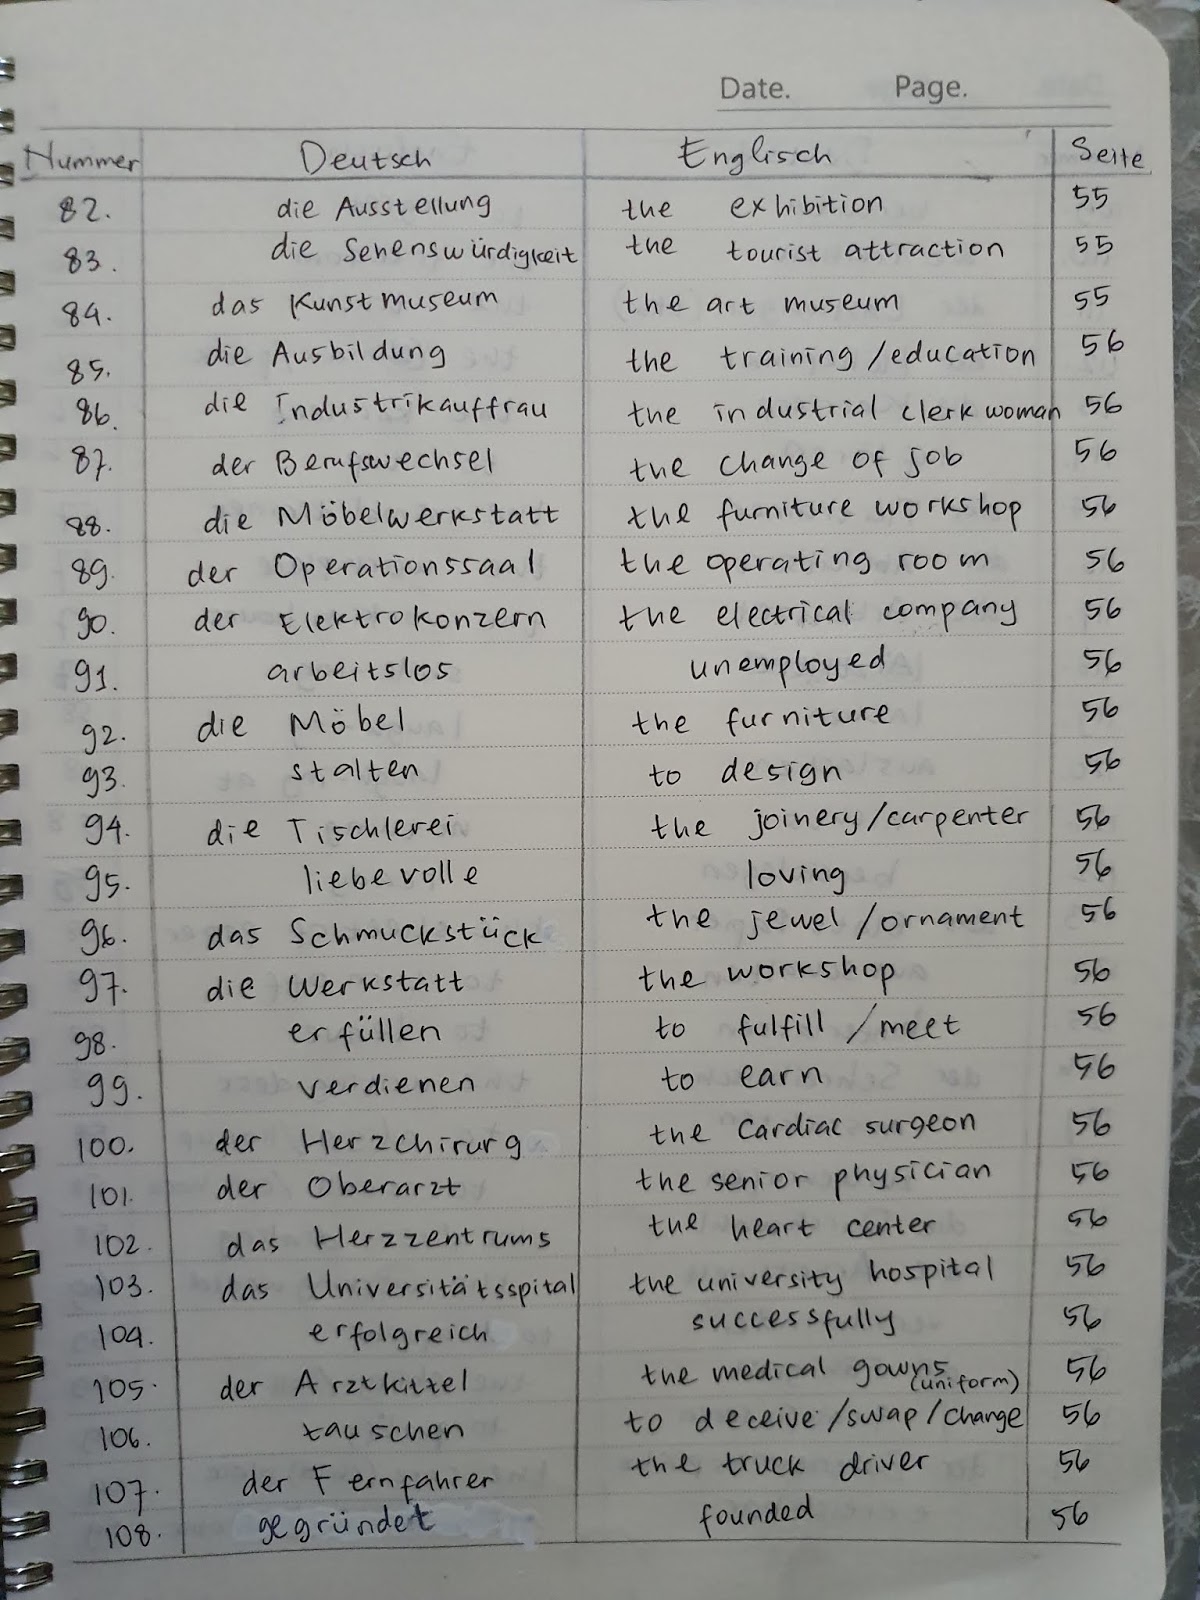 Date. Page.
Nummer Deutsch Englisch Seite
82. die Ausstellung the exhibition 55
83. die Sehenswürdigkeit the tourist attraction 55
84. das Kunstmuseum the art museum 55
85. die Ausbildung the training/education 56
86. die Industrikauffrau the industrial clerk woman 56
87. der Berufswechsel the change of job 56
88. die Möbelwerkstatt the furniture workshop 56
89. der Operationssaal the operating room 56
90. der Elektrokonzern the electrical company 56
91. arbeitslos unemployed 56
92. die Möbel the furniture 56
93. stalten to design 56
94. die Tischlerei the joinery/carpenter 56
95. liebevolle loving 56
96. das Schmuckstück the jewel/ornament 56
97. die Werkstatt the workshop 56
98. erfüllen to fulfill/meet 56
99. verdienen to earn 56
100. der Herzchirurg the cardiac surgeon 56
101. der Oberarzt the senior physician 56
102. das Herzzentrums the heart center 56
103. das Universitätsspital the university hospital 56
104. erfolgreich successfully 56
105. der Arztkittel the medical gowns (uniform) 56
106. tauschen to deceive/swap/change 56
107. der Fernfahrer the truck driver 56
108. gegründet founded 56